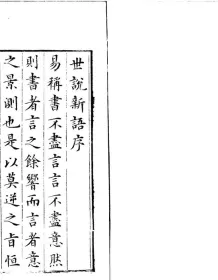 世說新語序
易稱書不盡言言不盡意然
則書者言之餘響而言者意
之景測也是以莫逆之旨恒